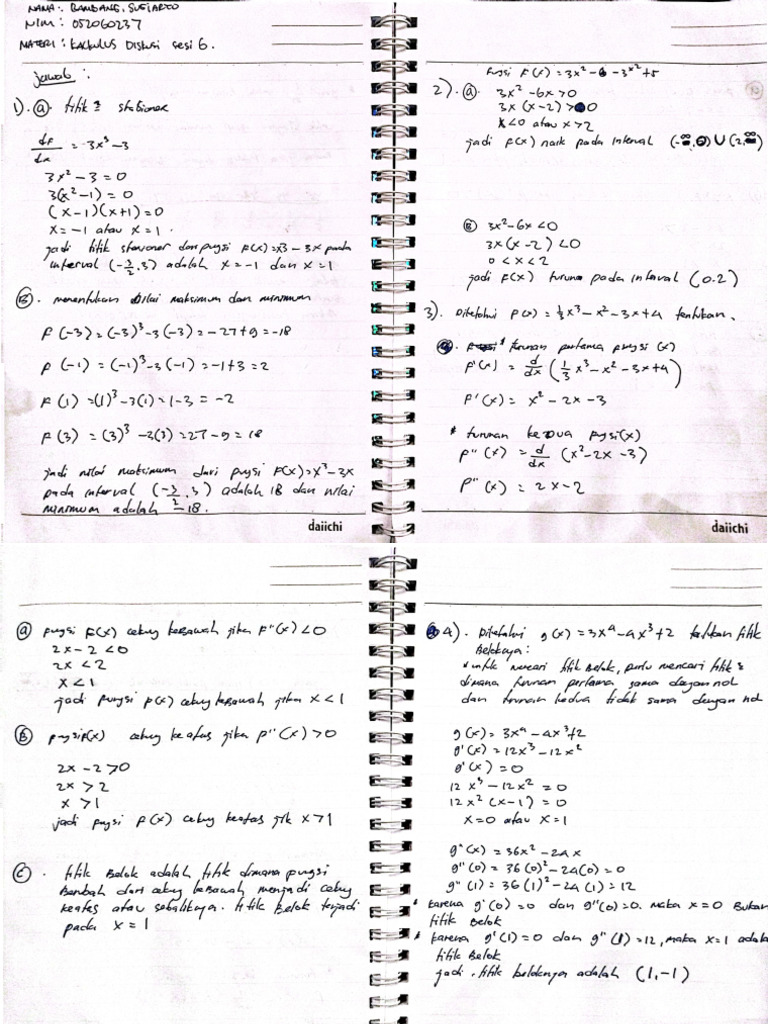 NAMA : BAMBANG. SUGIARTO
NIM : 052060237
MATERI : KALKULUS DISKUSI sesi 6.
jawab :
1). a titik² stasioner
df/dx = 3x³ - 3
3x² - 3 = 0
3(x² - 1) = 0
(x - 1)(x + 1) = 0
x = -1 atau x = 1.
jadi titik stasioner dari fungsi F(x) = x3 - 3x pada
interval (-3/2, 3) adalah x = -1 dan x = 1
B. menentukan nilai maksimum dan minimum
F(-3) = (-3)³ - 3(-3) = -27 + 9 = -18
F(-1) = (-1)³ - 3(-1) = -1 + 3 = 2
F(1) = (1)³ - 3(1) = 1 - 3 = -2
F(3) = (3)³ - 3(3) = 27 - 9 = 18
jadi nilai maksimum dari fungsi F(x) = x³ - 3x
pada interval (-3/2, 3) adalah 18 dan nilai
minimum adalah -18.
daiichi
fungsi F(x) = 3x² - 6 - 3x² + 5
2). a. 3x² - 6x > 0
3x (x - 2) > 0
x < 0 atau x > 2
jadi F(x) naik pada interval (-∞, 0) ∪ (2, ∞)
B 3x² - 6x < 0
3x (x - 2) < 0
0 < x < 2
jadi F(x) turun pada interval (0.2)
3). Diketahui F(x) = 1/3 x³ - x² - 3x + 4 tentukan.
turunan pertama fungsi (x)
F'(x) = d/dx (1/3 x³ - x² - 3x + 4)
F'(x) = x² - 2x - 3
* turunan kedua fungsi (x)
F''(x) = d/dx (x² - 2x - 3)
F''(x) = 2x - 2
daiichi
a fungsi F(x) cekung kebawah jika F''(x) < 0
2x - 2 < 0
2x < 2
x < 1
jadi fungsi F(x) cekung kebawah jika x < 1
B fungsi F(x) cekung keatas jika F''(x) > 0
2x - 2 > 0
2x > 2
x > 1
jadi fungsi F(x) cekung keatas jik x > 1
C. titik Belok adalah titik dimana fungsi
Berubah dari cekung kebawah menjadi cekung
keatas atau sebaliknya. titik Belok terjadi
pada x = 1
4). Diketahui g(x) = 3x⁴ - 4x³ + 2 titik
Beloknya :
* untuk mencari titik Belok, perlu mencari titik²
dimana turunan pertama sama dengan nol
dan turunan kedua tidak sama dengan nol
g(x) = 3x⁴ - 4x³ + 2
g'(x) = 12x³ - 12x²
g'(x) = 0
12x³ - 12x² = 0
12x² (x - 1) = 0
x = 0 atau x = 1
g''(x) = 36x² - 24x
g''(0) = 36(0)² - 24(0) = 0
g''(1) = 36(1)² - 24(1) = 12
* karena g'(0) = 0 dan g''(0) = 0. maka x = 0 Bukan
titik Belok
* karena g'(1) = 0 dan g''(1) = 12, maka x = 1 adala
titik Belok
jadi. titik beloknya adalah (1, -1)